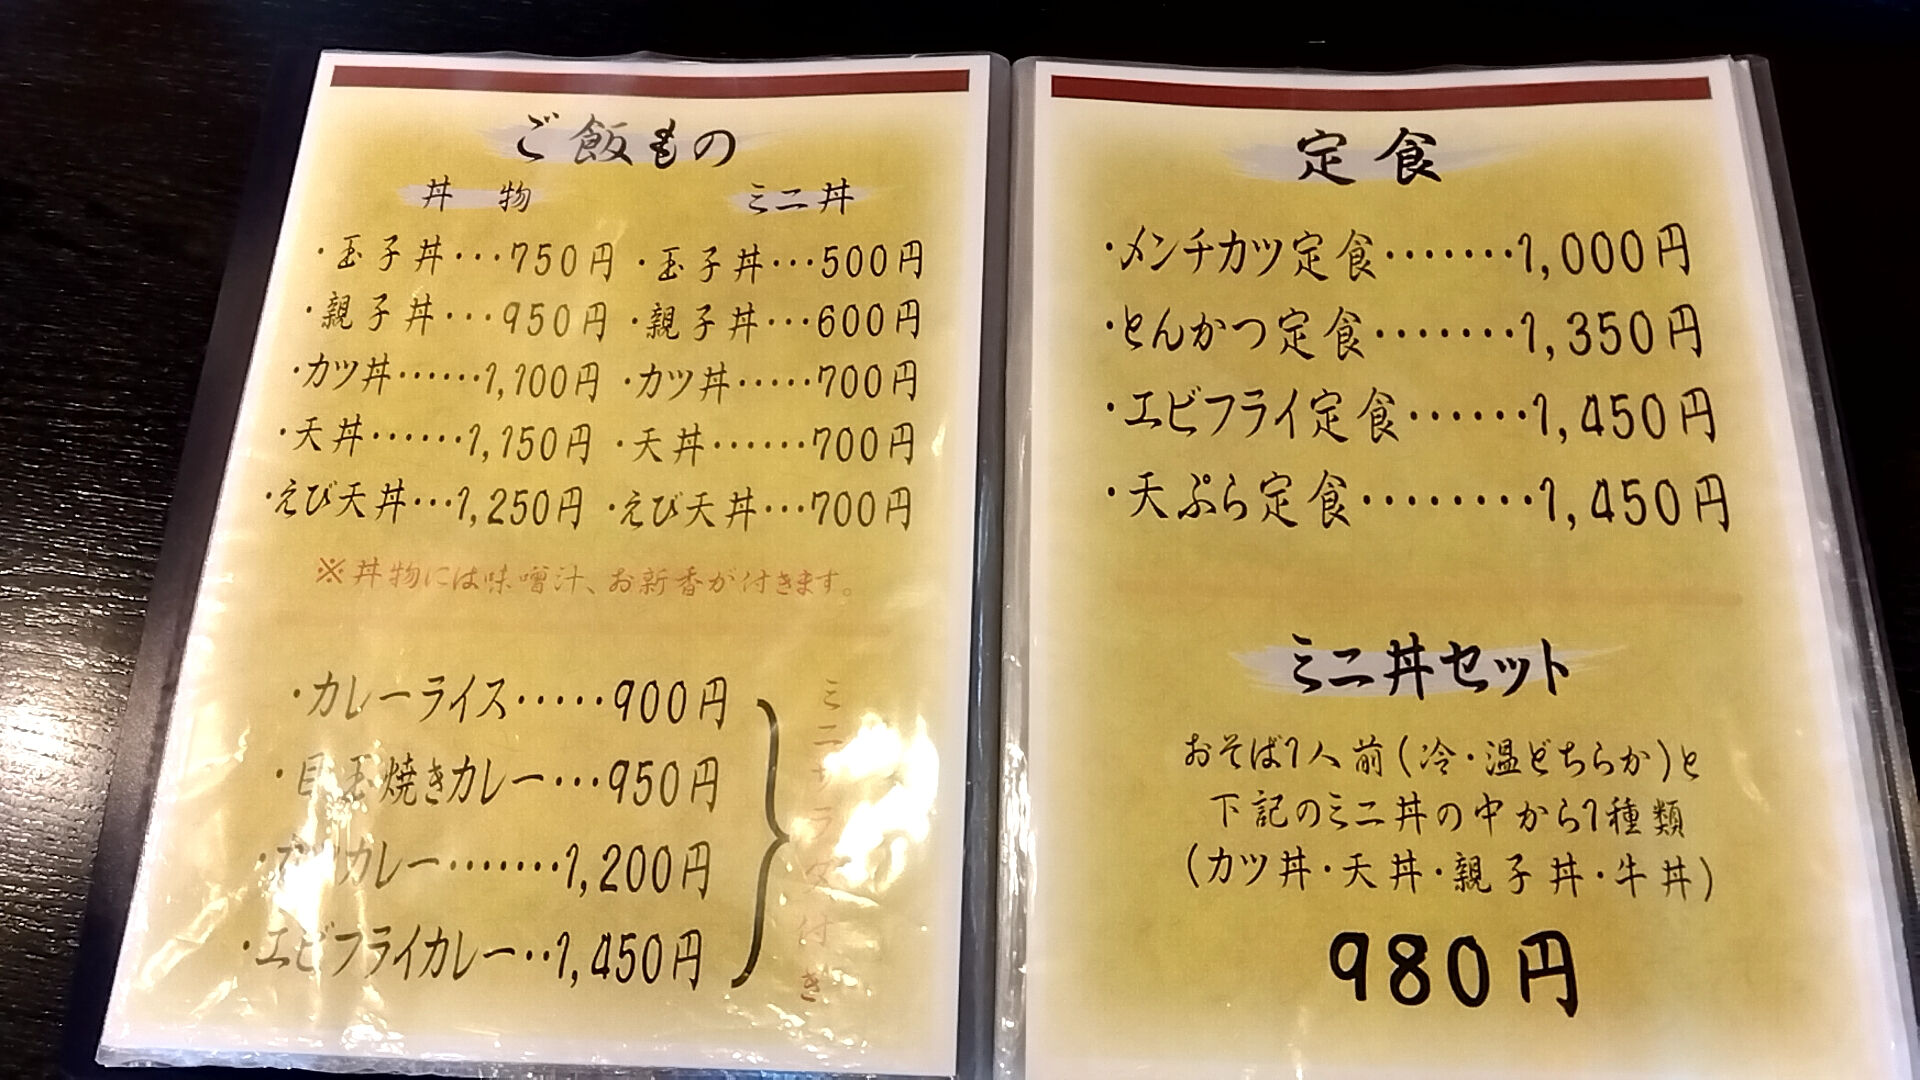 ご飯もの
丼物 ミニ丼
・玉子丼・・・750円 ・玉子丼・・・500円
・親子丼・・・950円 ・親子丼・・・600円
・カツ丼・・・・・・1,100円 ・カツ丼・・・・・700円
・天丼・・・・・・1,150円 ・天丼・・・・・・700円
・えび天丼・・・1,250円 ・えび天丼・・・700円
※丼物には味噌汁、お新香が付きます。
・カレーライス・・・・・900円
・目玉焼きカレー・・・950円
・カツカレー・・・・・・・1,200円
・エビフライカレー・・1,450円
ミニサラダ付き
定食
・メンチカツ定食・・・・・・・1,000円
・とんかつ定食・・・・・・・1,350円
・エビフライ定食・・・・・・1,450円
・天ぷら定食・・・・・・・・1,450円
ミニ丼セット
おそば1人前(冷・温どちらか)と
下記のミニ丼の中から1種類
(カツ丼・天丼・親子丼・牛丼)
980円